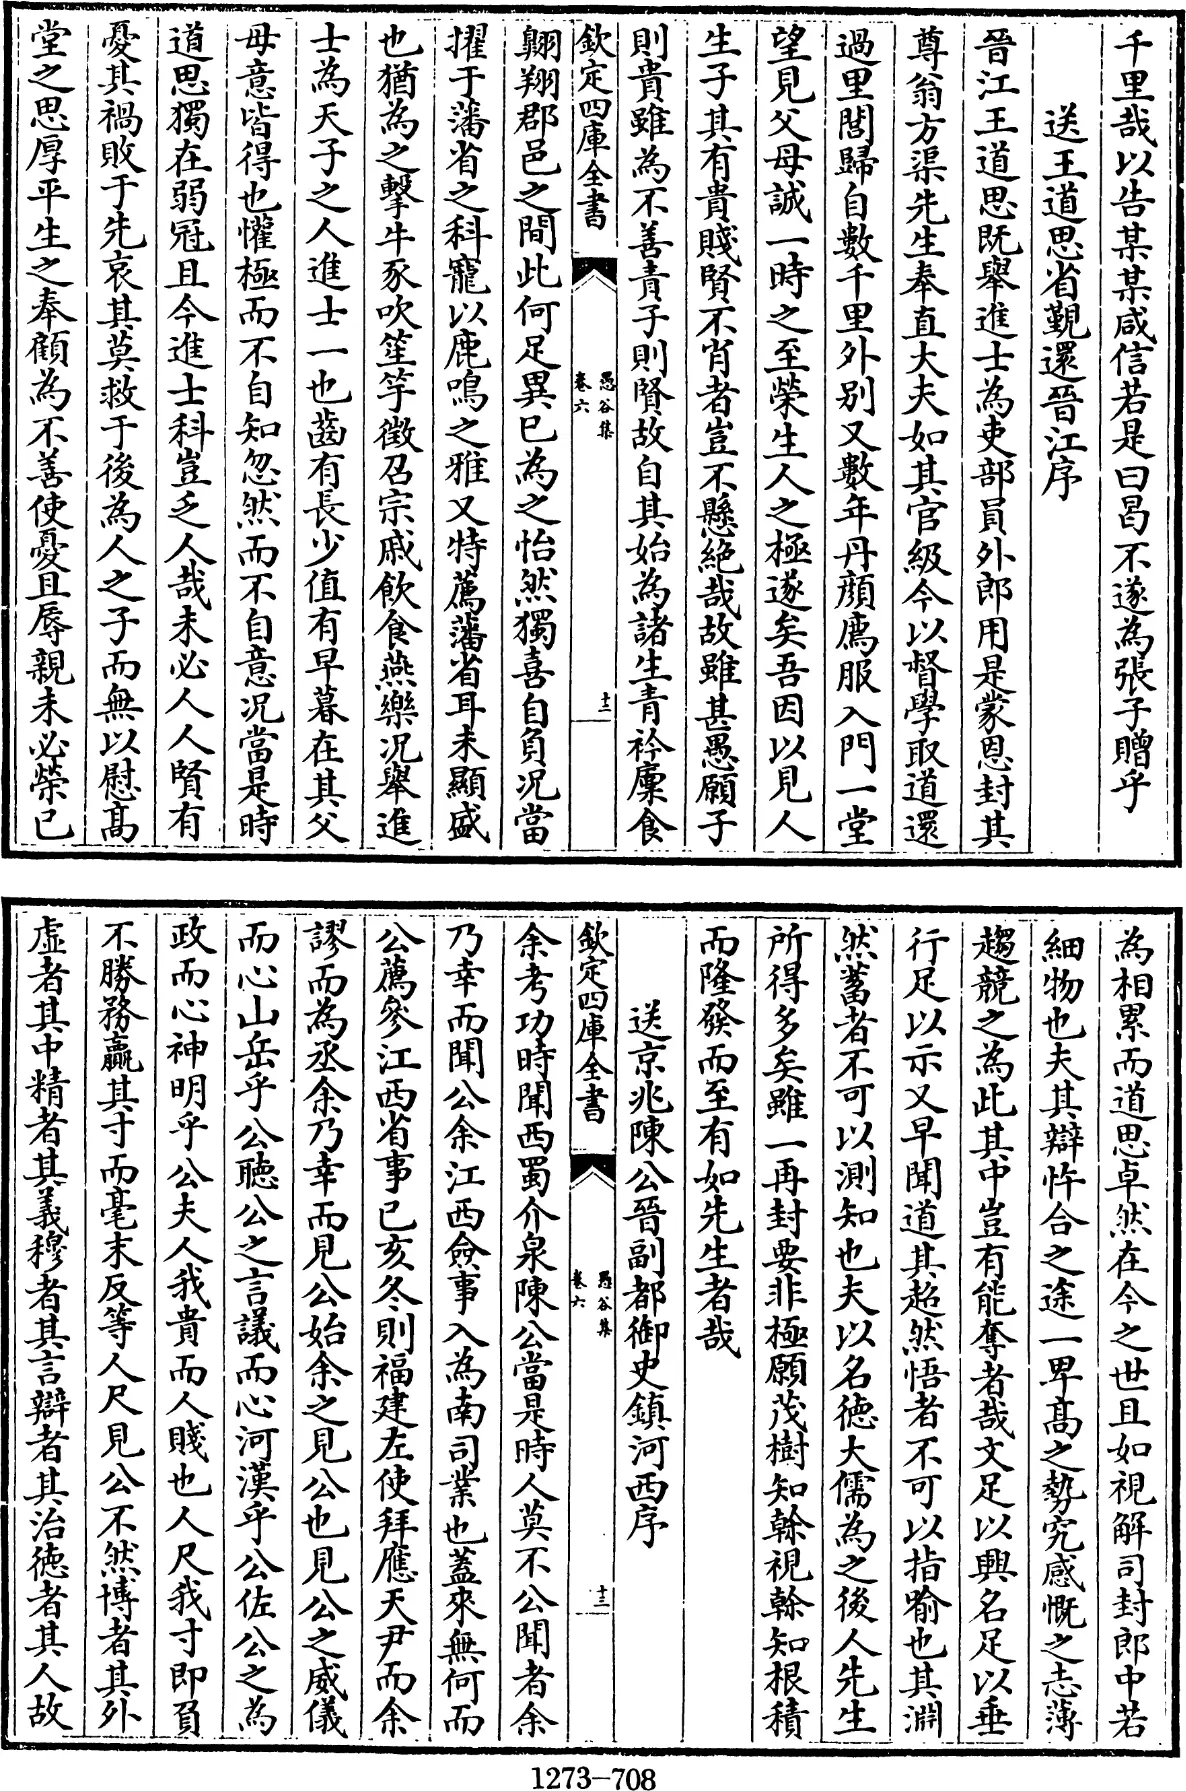 千里哉以告某某咸信若是曰曷不遂為張子贈乎
送王道思省覲還晉江序
晉江王道思既舉進士為吏部員外郎用是蒙恩封其
尊翁方渠先生奉直大夫如其官級今以督學取道還
過里閭歸自數千里外别又數年丹顔廌服入門一堂
望見父母誠一時之至榮生人之極遂矣吾因以見人
生子其有貴賤賢不肖者豈不懸絶哉故雖甚愚願子
則貴雖為不善責子則賢故自其始為諸生青衿廪食
欽定四庫全書
愚谷集
卷六
十二
翺翔郡邑之間此何足異已為之怡然獨喜自負况當
擢于藩省之科寵以鹿鳴之雅又特薦藩省耳未顯盛
也猶為之擊牛豕吹笙竽徵召宗戚飲食燕樂况舉進
士為天子之人進士一也齒有長少值有早暮在其父
母意皆得也懽極而不自知忽然而不自意况當是時
道思獨在弱冠且今進士科豈乏人哉未必人人賢有
憂其禍敗于先哀其莫救于後為人之子而無以慰髙
堂之思厚平生之奉顧為不善使憂且辱親未必榮已
為相累而道思卓然在今之世且如視解司封郎中若
細物也夫其辯忤合之途一卑髙之勢究感慨之志薄
趨競之為此其中豈有能奪者哉文足以興名足以垂
行足以示又早聞道其超然悟者不可以指喻也其淵
然蓄者不可以測知也夫以名徳大儒為之後人先生
所得多矣雖一再封要非極願茂樹知榦視榦知根積
而隆發而至有如先生者哉
送京兆陳公晉副都御史鎮河西序
欽定四庫全書
愚谷集
卷六
十三
余考功時聞西蜀介泉陳公當是時人莫不公聞者余
乃幸而聞公余江西僉事入為南司業也蓋來無何而
公薦參江西省事已亥冬則福建左使拜應天尹而余
謬而為丞余乃幸而見公始余之見公也見公之威儀
而心山岳乎公聽公之言議而心河漢乎公佐公之為
政而心神明乎公夫人我貴而人賤也人尺我寸即負
不勝務贏其寸而毫末反等人尺見公不然博者其外
虚者其中精者其義穆者其言辯者其治徳者其人故
1273-708